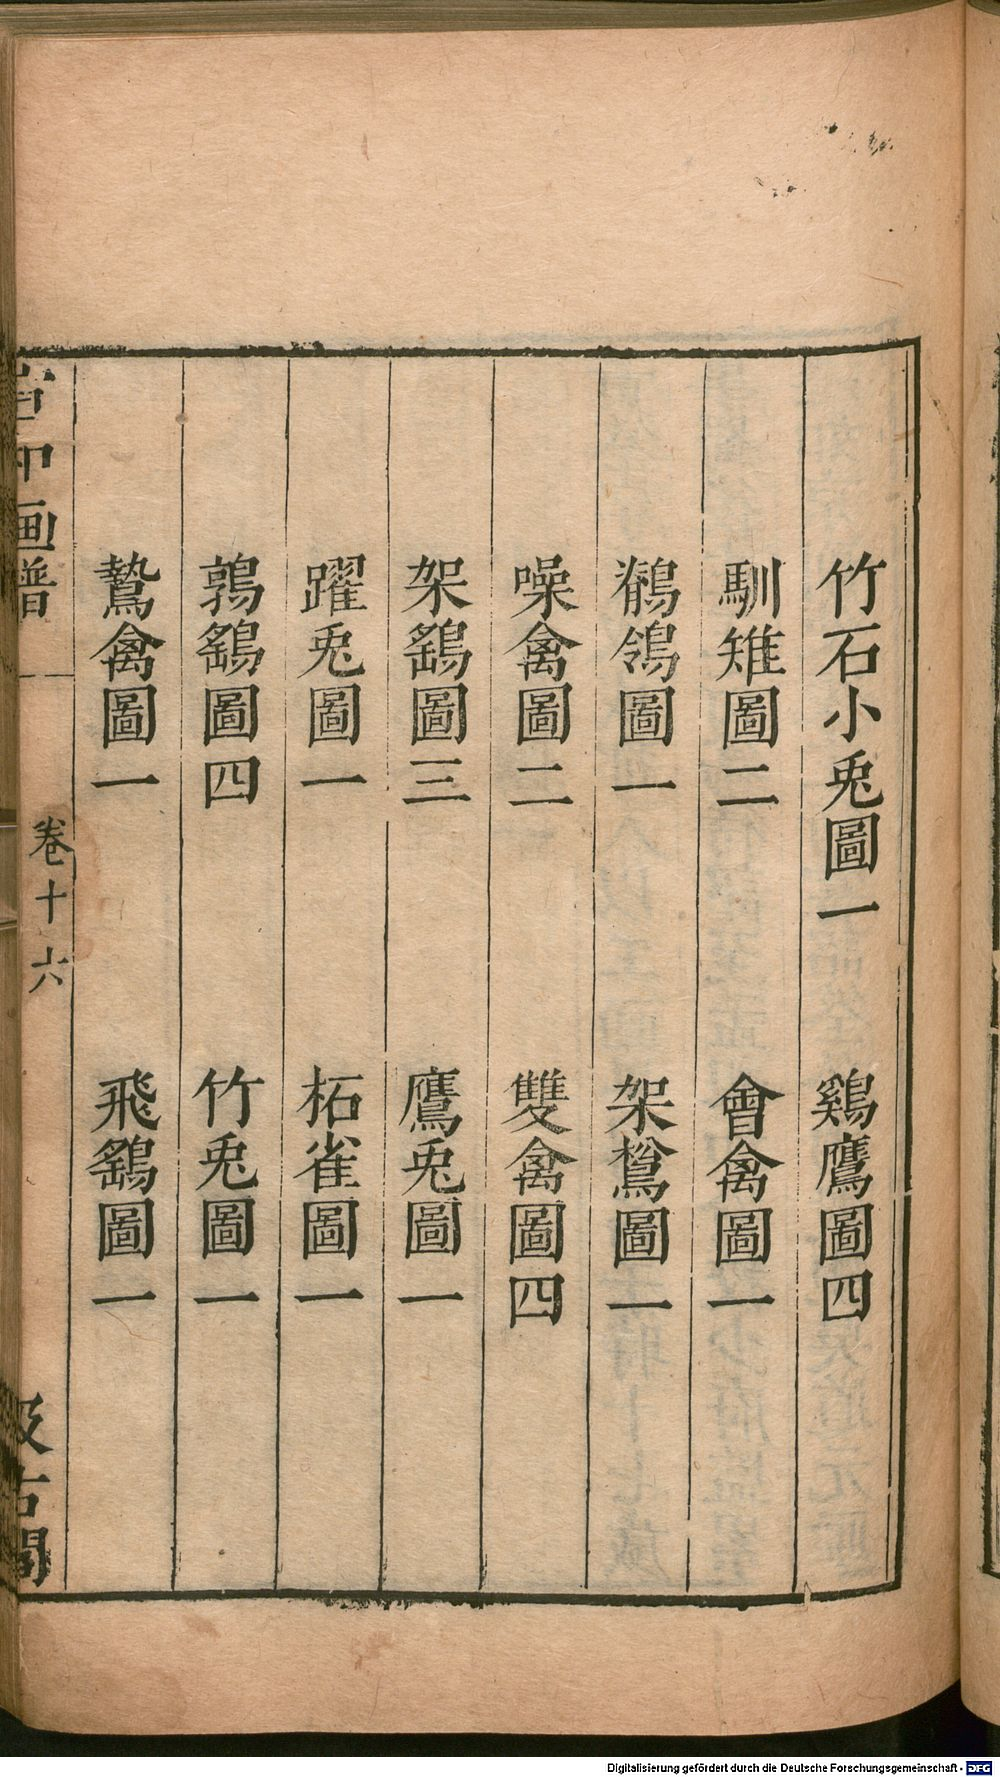 竹石小兎圖一 鷄鷹圖四
馴雉圖二 會禽圖一
鶺鴒圖一 架鵞圖一
噪禽圖二 雙禽圖四
架鷂圖三 鷹兎圖一
躍兎圖一 柘雀圖一
鶉鷂圖四 竹兎圖一
鷙禽圖一 飛鷂圖一
宣和画譜 卷十六 汲古閣
Digitalisierung gefördert durch die Deutsche Forschungsgemeinschaft - DFG